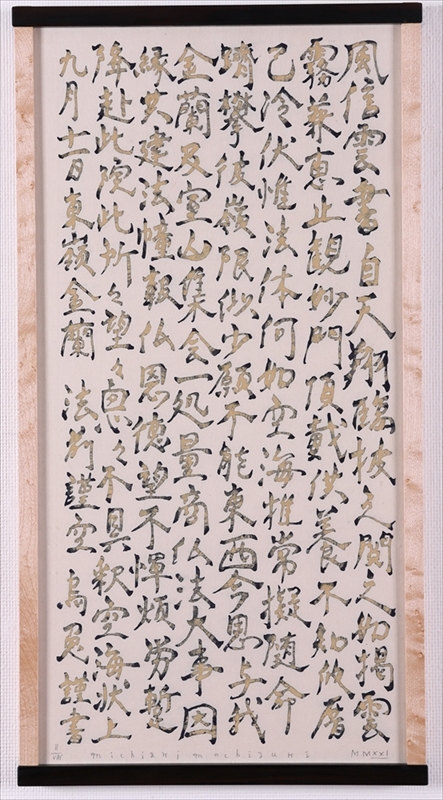 風信雲書自天翔臨披之閲之如掲雲
霧兼恵止観妙門頂戴供養不知攸厝
已冷伏惟法体何如空海推常擬随命
躋攀彼嶺限以少願不能東西今思与我
金蘭及室山集会一処量商仏法大事因
縁共建法幢報仏恩徳望不憚煩労蹔
降赴此院此所々望々忩々不具釈空海状上
九月十一日東嶺金蘭 法前謹空 謹書
michiaki mochizuki MMXXI